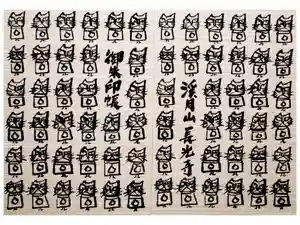 月山長光寺
御朱印帳